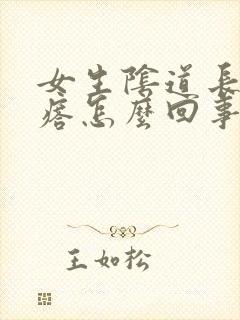 女生陰道長
痞怎麼回事
王如松